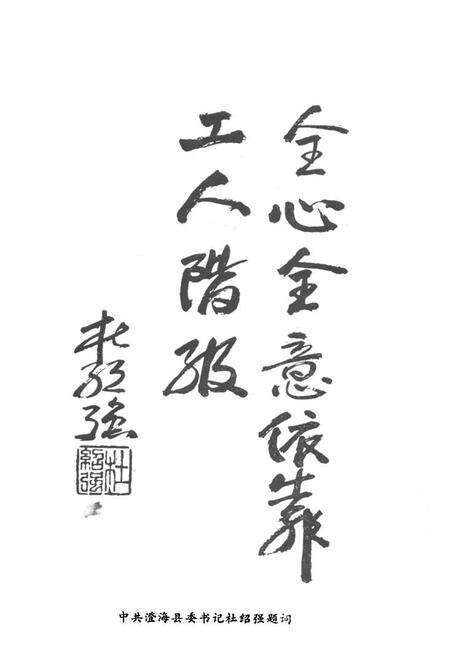 全心全意依靠
工人阶级
杜绍强
杜
紹强
中共澄海县委书记杜绍强题词